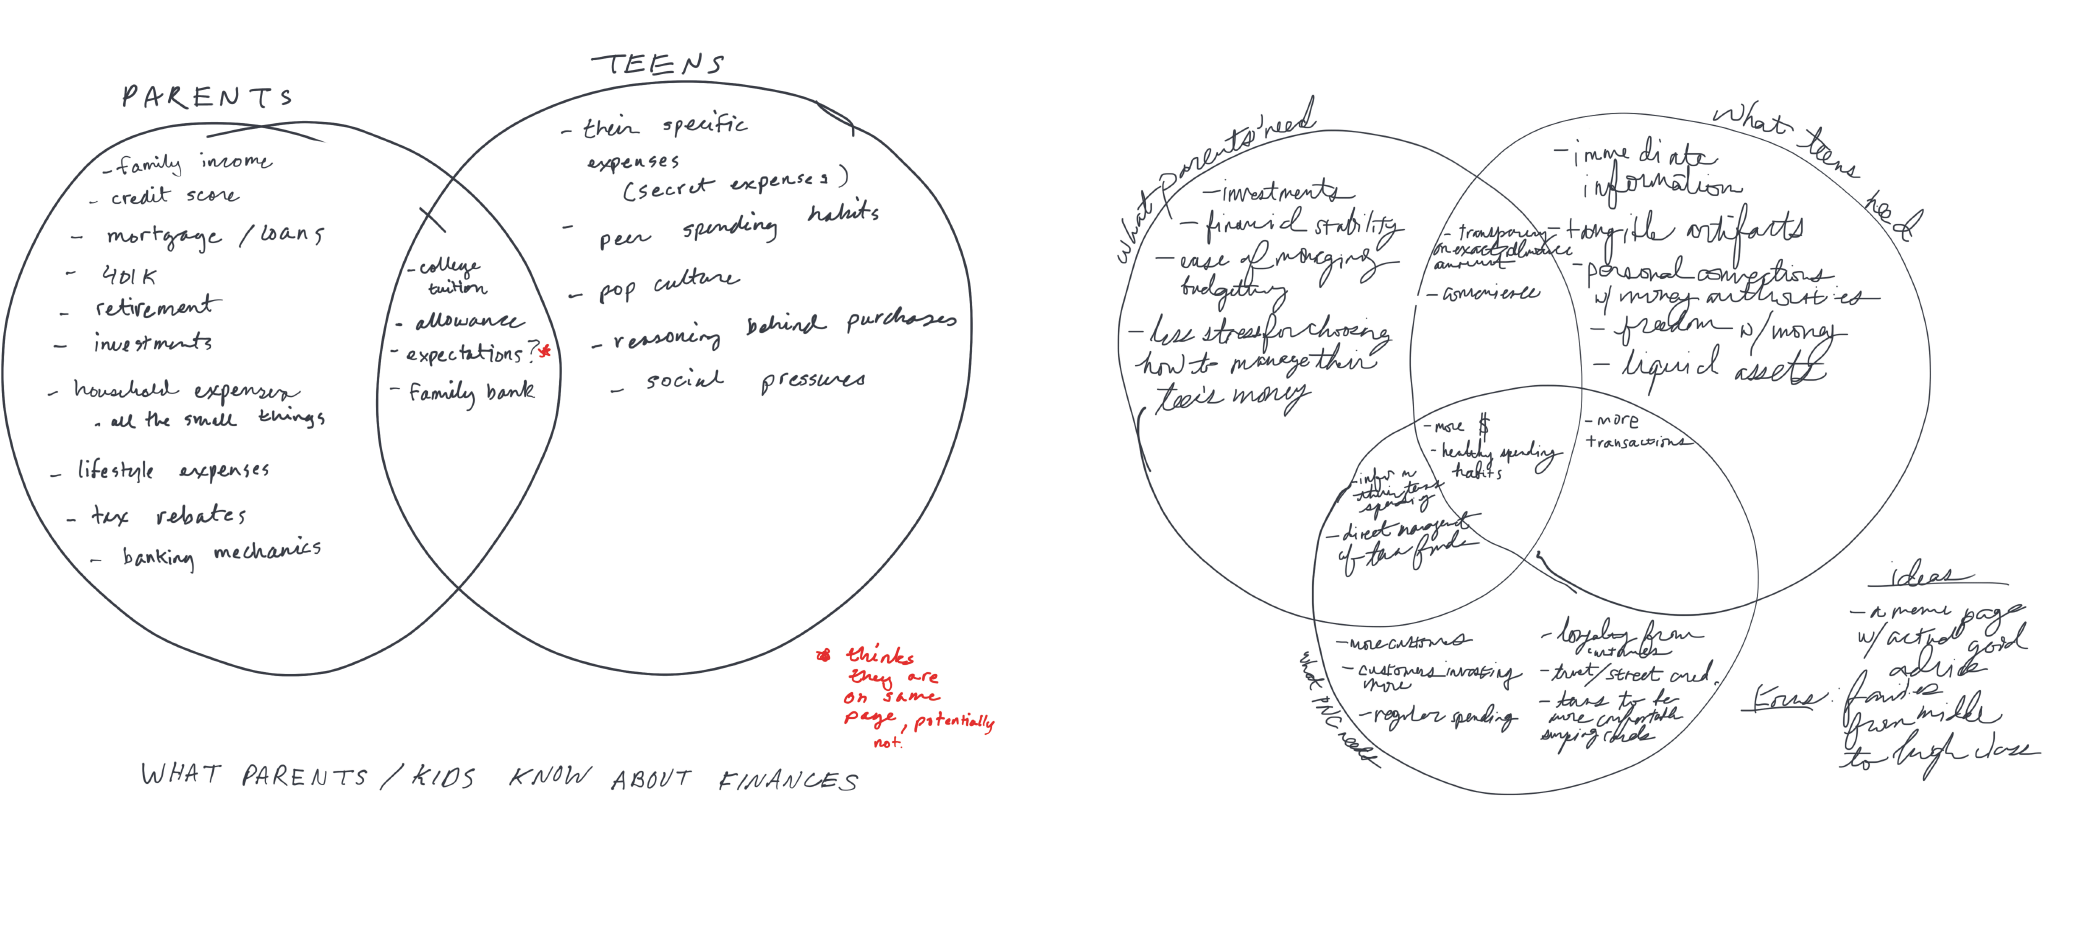 PARENTS
- family income
- credit score
- mortgage / loans
- 401K
- retirement
- investments
- household expenses
- all the small things
- lifestyle expenses
- tax rebates
- banking mechanics
- college
tuition
- allowance
- expectations?*
- Family bank
TEENS
- their specific
expenses
(secret expenses)
- peer spending habits
- pop culture
- reasoning behind purchases
- social pressures
* thinks
they are
on same
page, potentially
not.
WHAT PARENTS / KIDS KNOW ABOUT FINANCES
What parents' need
- investments
- financial stability
- ease of managing
budgetting
- less stress for choosing
how to manage their
money
- transparency
on exact allowance
amount
- convenience
What teens need
- immediate
information
- tangible artifacts
- personal connections
w/ money authorities
- freedom w/ money
- liquid assets
- more $
- healthy spending
habits
- more
transactions
- info on
their teens
spending
- direct management
of teen funds
What PNC needs
- more customers
- customers investing
more
- regular spending
- loyalty from
customers
- trust/street cred.
- teens to be
more comfortable
swiping cards
ideas
- a meme page
w/ actual good
advice
Focus: families
from middle
to high class